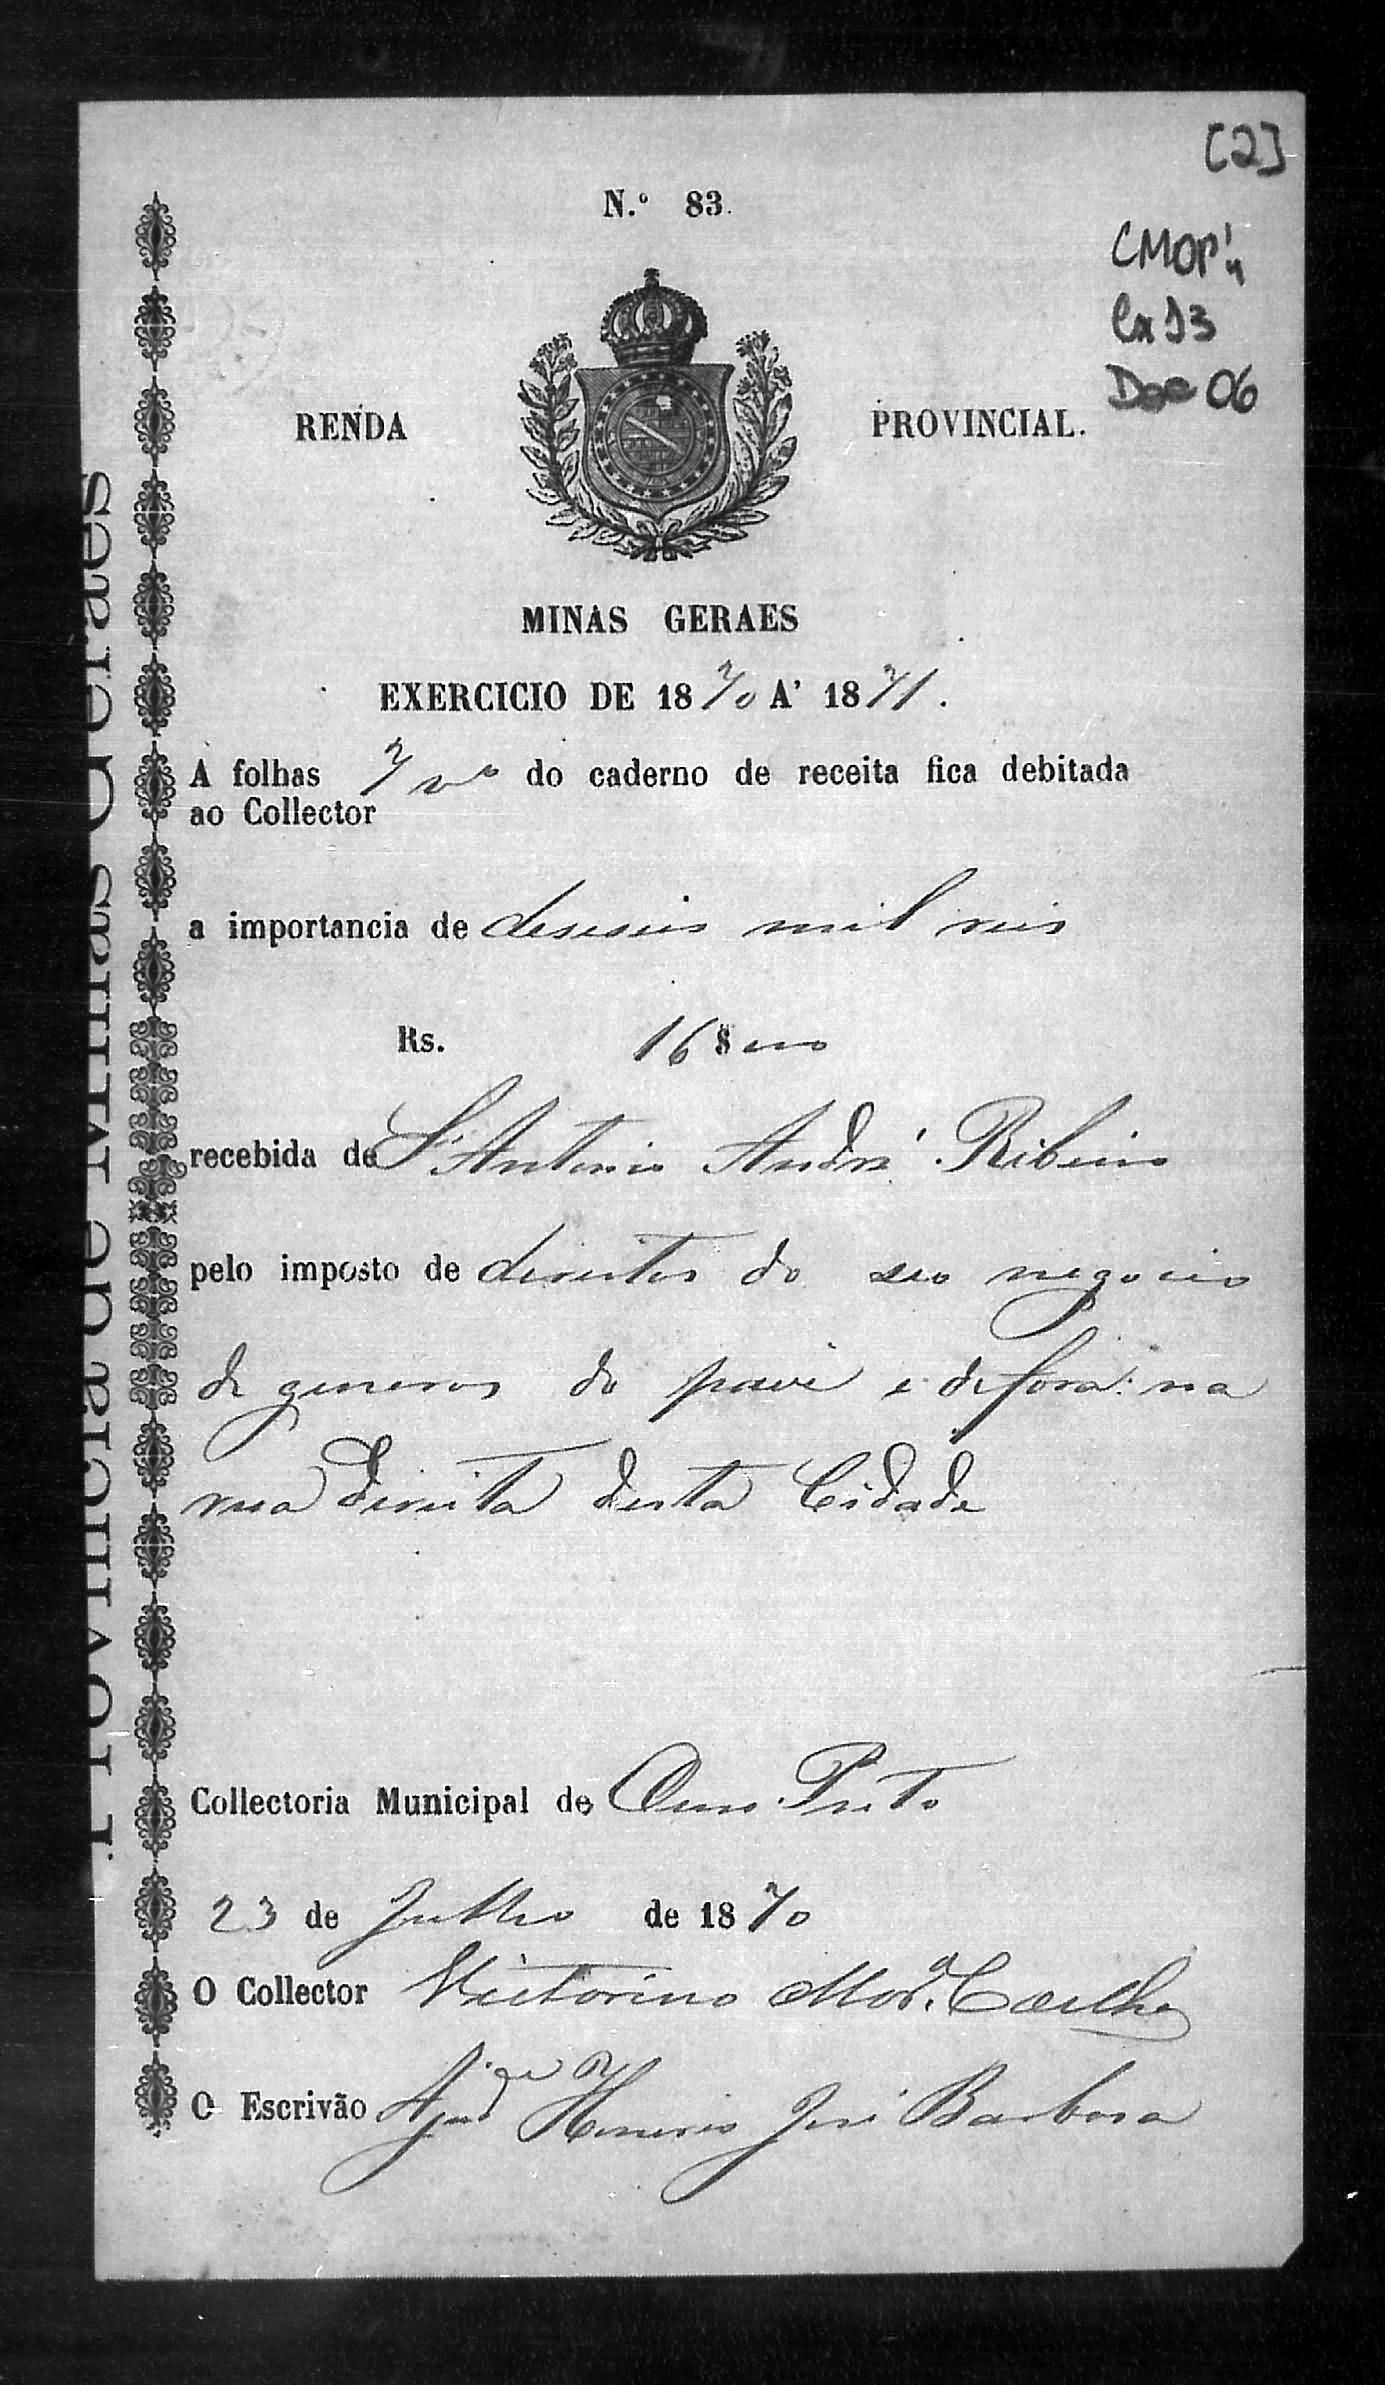 [2]
N.º 83.
CMOP
Cx 13
Doc 06
RENDA PROVINCIAL.
MINAS GERAES
EXERCICIO DE 1870 A' 1871.
A folhas 7 vº do caderno de receita fica debitada
ao Collector
a importancia de deseseis mil reis
Rs. 16$000
recebida de Antonio André Ribeiro
pelo imposto de direitos do seo negocio
de generos do paiz e de fora: na
rua Direita desta Cidade
Collectoria Municipal de Ouro Preto
23 de Julho de 1870
O Collector Victorino Coelho
O Escrivão José Barbosa
Provincia de Minas Geraes